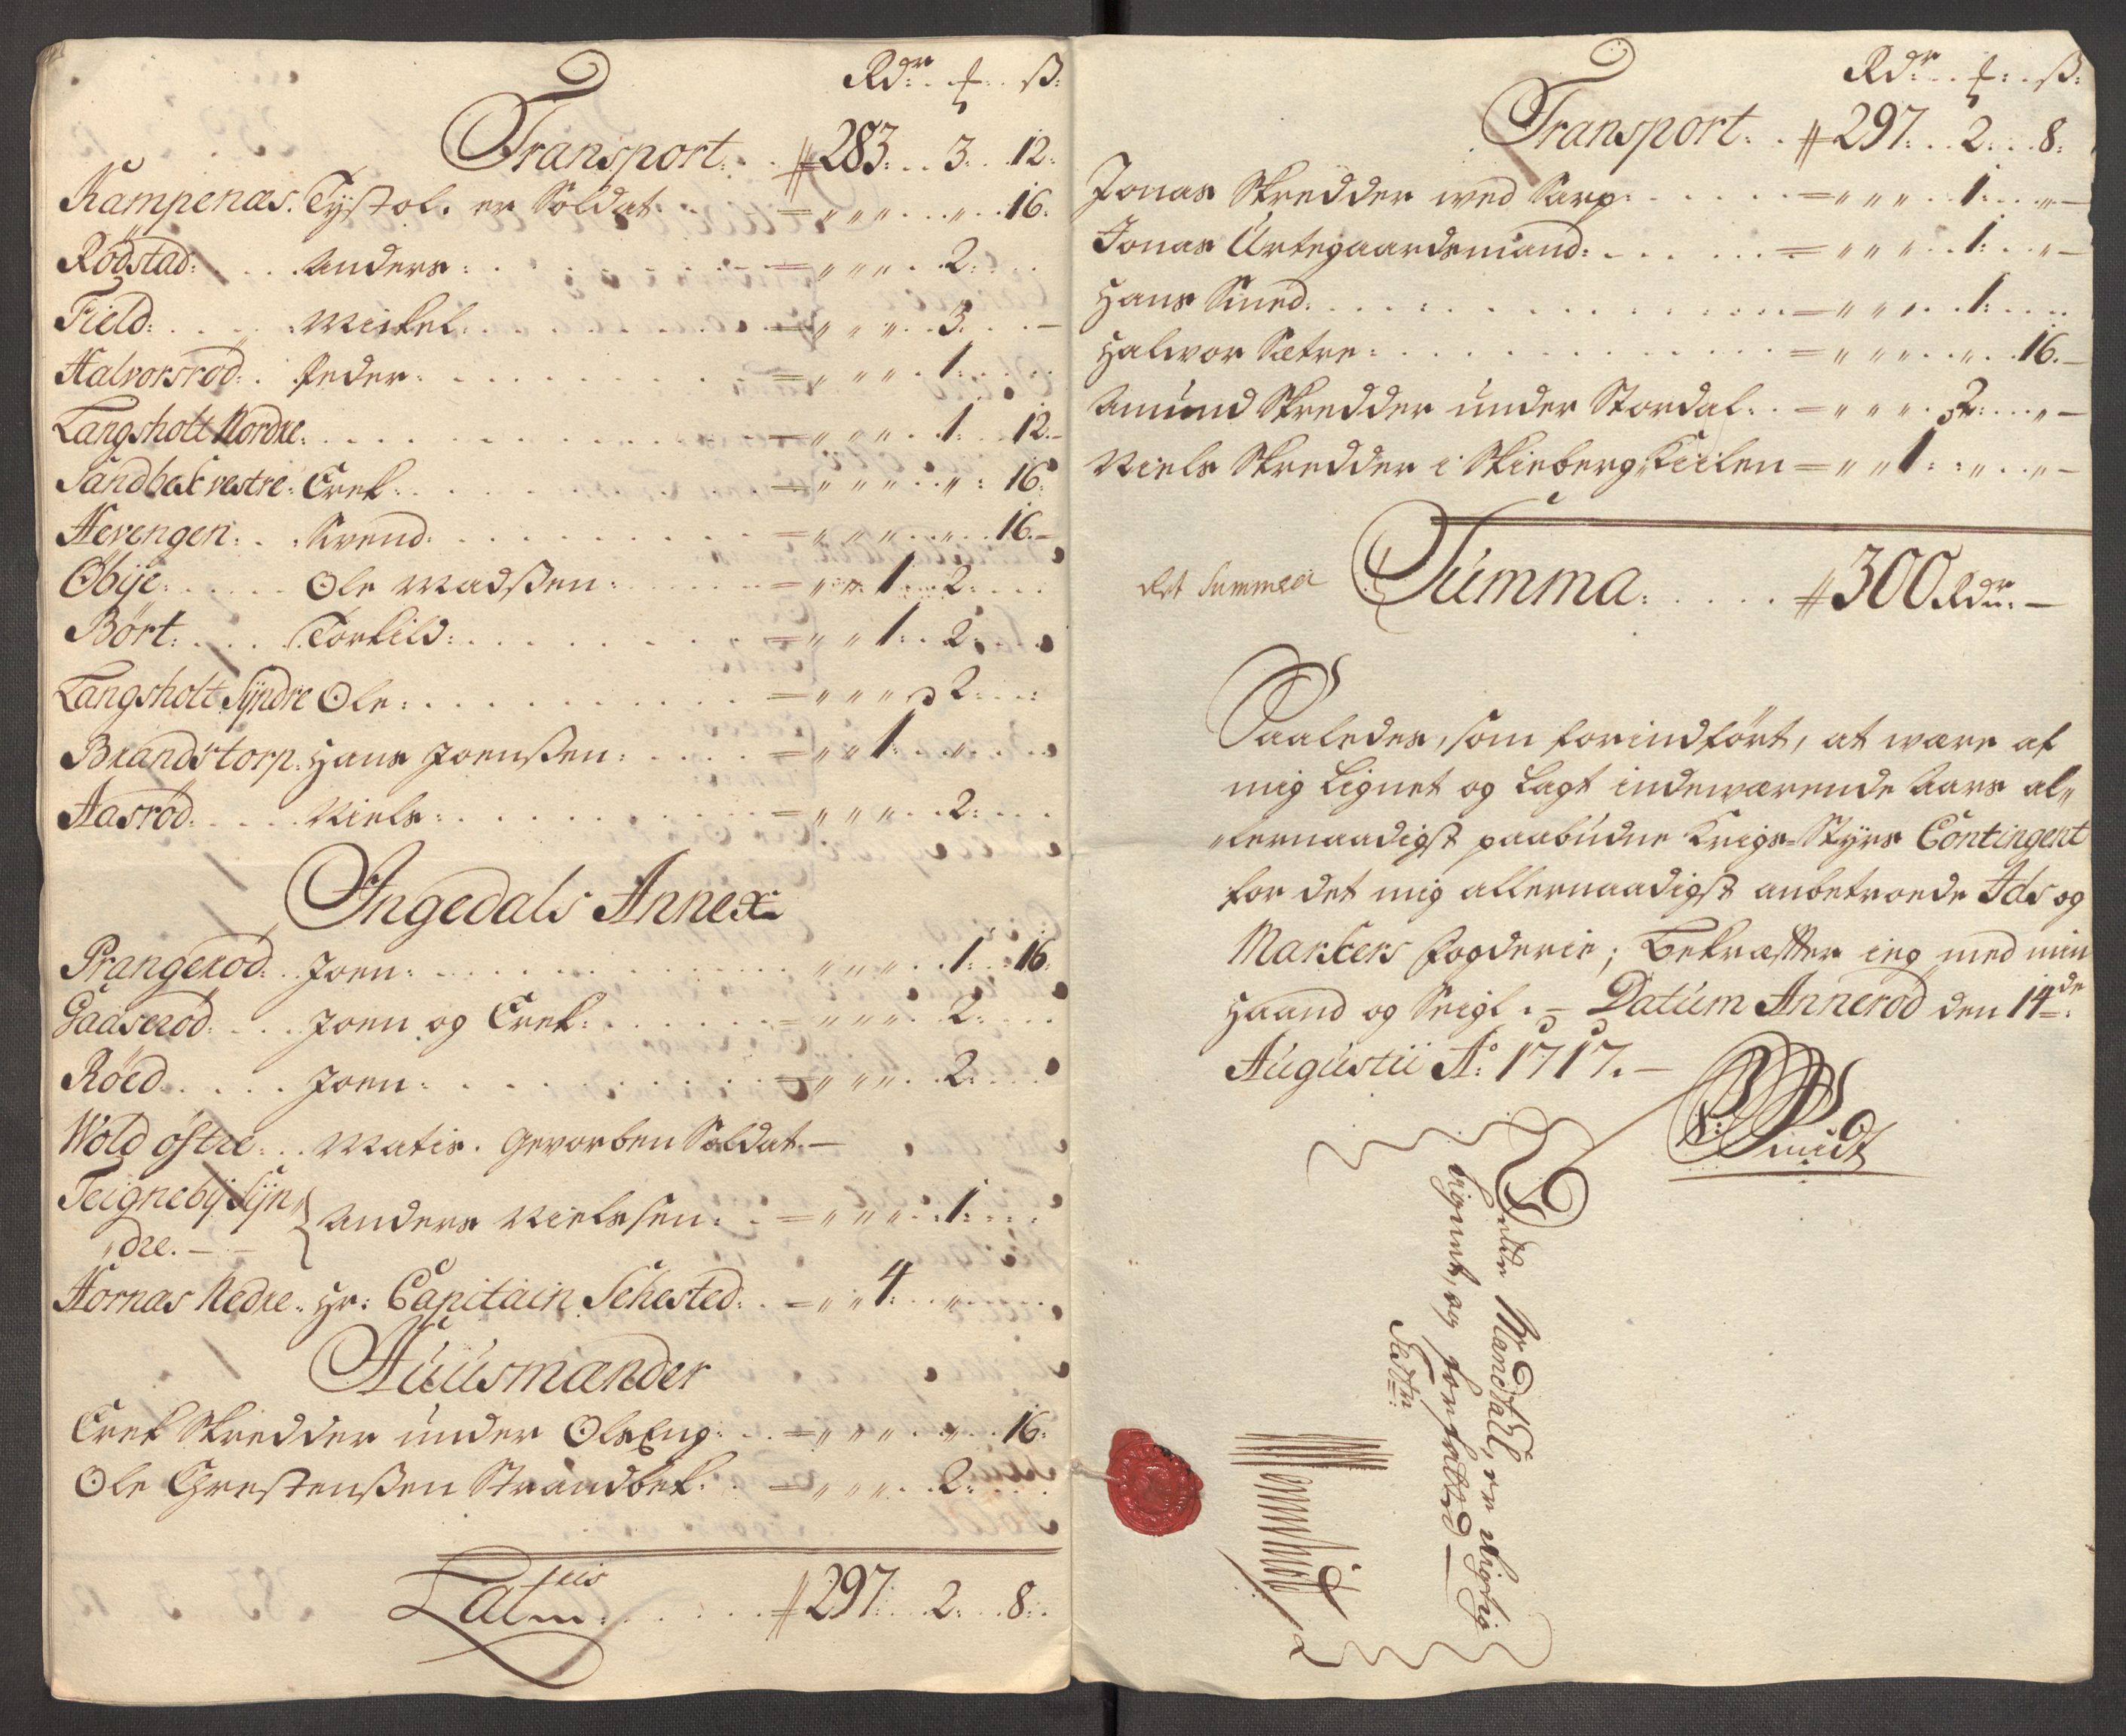 Rdr. ƒ. ß:
Transport. . # 283. . 3. . 12.
Kampenæs. Tyſtol. er Soldat. = „ „ „ . . „ . . 16.
Rödstad: . . . Anders: . . . = „ „ „ . . 2: . .
Field: . . . Mickel. . . . = „ „ „ . . 3. . . –
Halvorsröd: . Peder: . . . = „ „ „ . . 1: . . .
Langsholt Nordre: . . . = „ „ „ . . 1: . . 12. –
Sandbek vestre: Erek: . . . = „ „ „ . . „ : 16.
Hevengen: . . Svend: . . . = „ „ „ . . „ . . 16. –
Öbÿe: . . . Ole Madsßen: . . . = „ „ 1: . . 2: . . .
Bört: . . . Torkild: . . . = „ „ 1: . . 2: . .
Langsholt Sÿndre Ole: . . . = „ „ „ 2: . . .
Brandstorp. Hans Joenßen: . . . = „ „ 1: . . „ . .
Aasröd: . . . Niels: . . . = „ „ „ . . 2: . . .
Ingedals Annex
Prangeröd: . . Joen: . . . „ „ „ . . 1: . . 16.
Gaaseröd: . . . Joen og Erek: . . . = „ „ „ . . 2: . . .
Röed . . . Joen: . . . = „ „ „ . . 2: . . .
Wold östre: . . Matis. Gevorben Soldat. –
Teignebÿ Sÿn„
„dre. – – Anders Nielssen: . . = „ „ „ . . 1: . . .
Hornæs Nedre. Hr: Capitain Sehested: . . = „ „ 4. . . „ . . .
Huusmænder
Erek Skredder under Ols Eng: . . = „ „ „ . . „ . . 16.
Ole Chrestenßen Strandbek: . = „ „ „ . . 2: . . .
Latus: . . . # 297: . . 2: . . 8: .
Rdr. . . ƒ: . . ß:
Transport: . . # 297: . . 2: . . 8:
Jonas Skredder wed Sarp: . . . = „ „ „ . . 1: . . „ –
Jonas Urtegaardsmand: . . . = „ „ „ . . 1: . . „ –
Hans Smed: . . . = „ „ „ . . 1: . . .
Halwor Sætre: . . . = „ „ „ . . „ . . 16. –
Amund Skredder under Stordal: . . = „ „ „ . 2: . . „ –
Niels Skredder i Skieberg Kiilen = „ „ 1: . „ . . „ –
Ret Summa Summa: . . . # 300 Rdr. –
Saaledes, som forindfört, at være af
mig Lignet og Lagt indeværende Aars al„
„lernaadigst paabudne Krigs=Styrs Contingent
for det mig allernaadigst anbetroede Ids og
Markers fogderie; Bekræfter ieg med min
Haand og Seigl. – Datum Anneröd den 14de:
Augustii Ao: 1717. –
Smidt
Dette Mandtall, er rigtig
lignet, og forfatted –